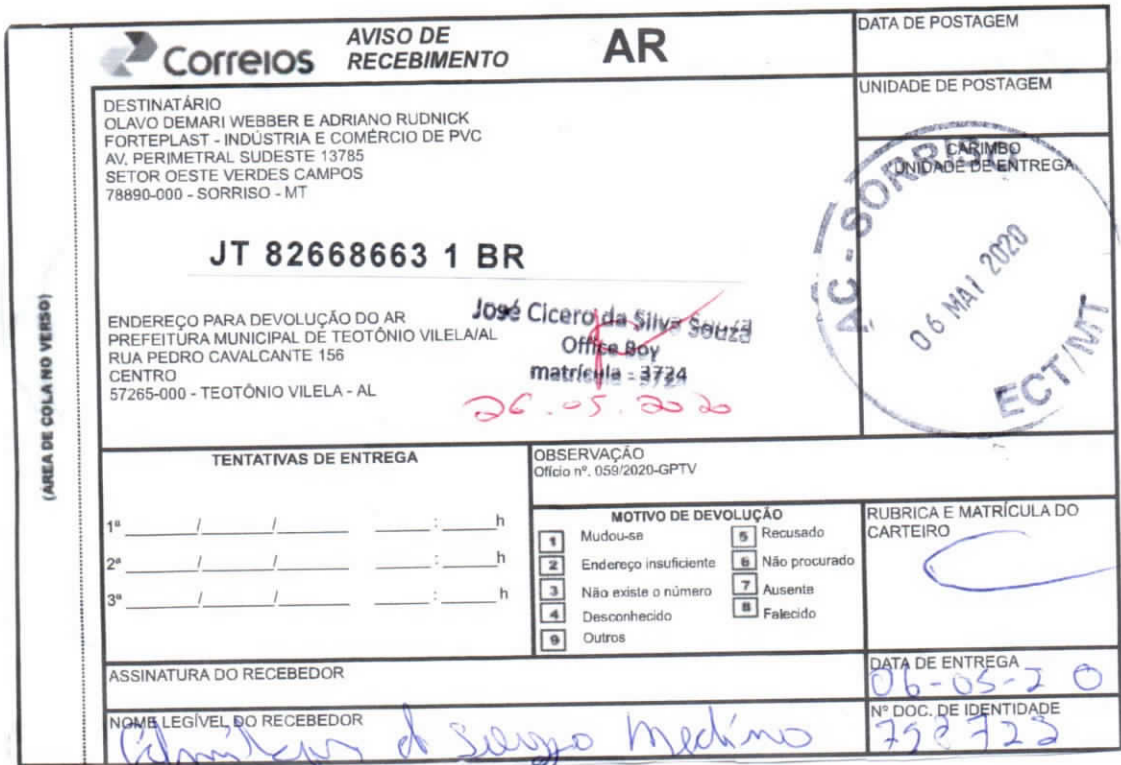 Correios
AVISO DE
RECEBIMENTO
AR
DATA DE POSTAGEM
UNIDADE DE POSTAGEM
DESTINATÁRIO
OLAVO DEMARI WEBBER E ADRIANO RUDNICK
FORTEPLAST - INDÚSTRIA E COMÉRCIO DE PVC
AV. PERIMETRAL SUDESTE 13785
SETOR OESTE VERDES CAMPOS
78890-000 - SORRISO - MT
CARIMBO
UNIDADE DE ENTREGA
AC - SORRISO
06 MAI 2020
ECT/MT
JT 82668663 1 BR
ENDEREÇO PARA DEVOLUÇÃO DO AR
PREFEITURA MUNICIPAL DE TEOTÔNIO VILELA/AL
RUA PEDRO CAVALCANTE 156
CENTRO
57265-000 - TEOTÔNIO VILELA - AL
José Cicero da Silva Souza
Office Boy
matrícula - 3724
26.05.2020
(ÁREA DE COLA NO VERSO)
TENTATIVAS DE ENTREGA
1ª ____/____/____ ____:____h
2ª ____/____/____ ____:____h
3ª ____/____/____ ____:____h
OBSERVAÇÃO
Ofício nº. 059/2020-GPTV
MOTIVO DE DEVOLUÇÃO
1 Mudou-se
2 Endereço insuficiente
3 Não existe o número
4 Desconhecido
9 Outros
5 Recusado
6 Não procurado
7 Ausente
8 Falecido
RUBRICA E MATRÍCULA DO
CARTEIRO
ASSINATURA DO RECEBEDOR
DATA DE ENTREGA
06-05-20
NOME LEGÍVEL DO RECEBEDOR
Nº DOC. DE IDENTIDADE